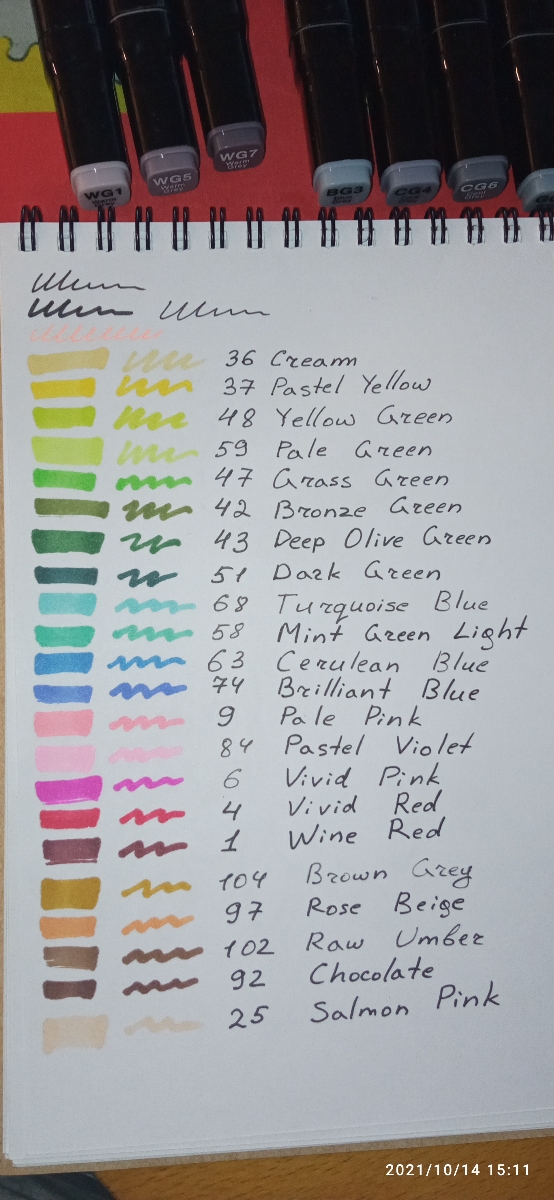 WG1
WG5
Warm
Grey
WG7
Warm
Grey
BG3
CG4
CG6
Cool
Grey
36 Cream
37 Pastel Yellow
48 Yellow Green
59 Pale Green
47 Grass Green
42 Bronze Green
43 Deep Olive Green
51 Dark Green
68 Turquoise Blue
58 Mint Green Light
63 Cerulean Blue
74 Brilliant Blue
9 Pale Pink
84 Pastel Violet
6 Vivid Pink
4 Vivid Red
1 Wine Red
104 Brown Grey
97 Rose Beige
102 Raw Umber
92 Chocolate
25 Salmon Pink
2021/10/14 15:11